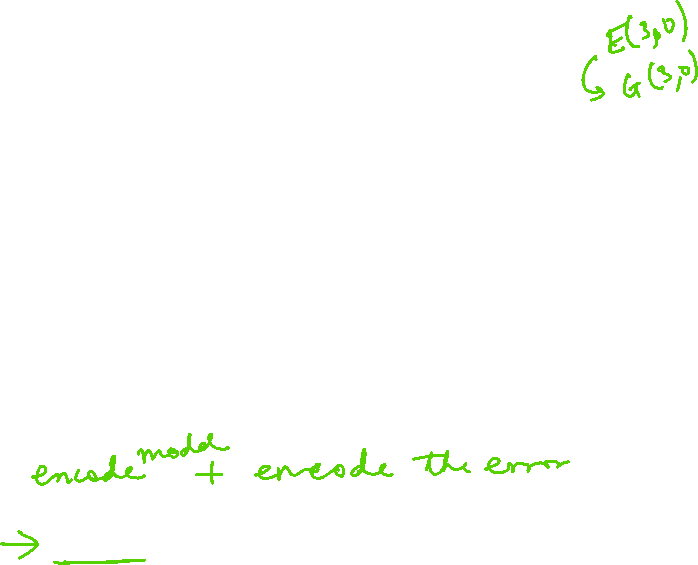 E(3,0)
G(3,0)
encode model + encode the error
→